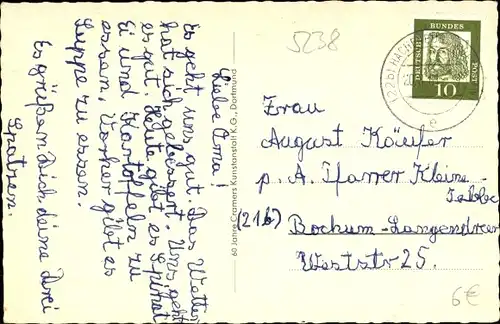 Liebe Oma!
Es geht uns gut. Das Wetter
hat sich gebessert. Uns geht
es gut. Heute gibt es Spinat
Ei und Kartoffeln zu
essen. Vorher gibt es
Suppe zu essen.
Es grüßen Dich deine Drei
Spatzen.
60 Jahre Cramers Kunstanstalt K.G., Dortmund
5238
DEUTSCHE BUNDESPOST
10
(22b) HACHENBURG
e
Frau
August Käufer
p. A. Pfarrer Kleine-
(21b) Bochum-Langendreer
Weststr 25.
6€